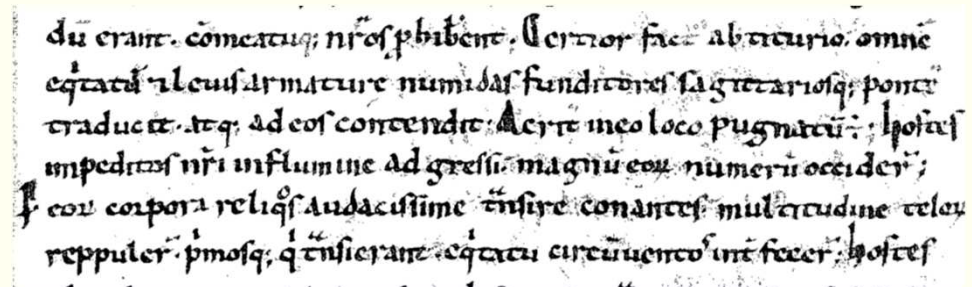 dū erant. cōmeatuq; nr̄os ꝓhibe͞nt. Certior fact ab titurio. omnē
eqͥtatū ⁊ leuis armature numidas funditores sagittariosq; pontē
traducit. atq; ad eos contendit. Acrit̄ in eo loco pugnatū ÷. hostes
impeditos nr̄i in flumine ad gressi. magnū eoꝝ numerū occider̄;
P eoꝝ corpora reliqͦs audacissime tͣnsire conantes multitudine teloꝝ
reppuler̄. pͥmosq; qͥ tͣnsierant. eqͥtatu circūuentos int̄fecer̄. hostes